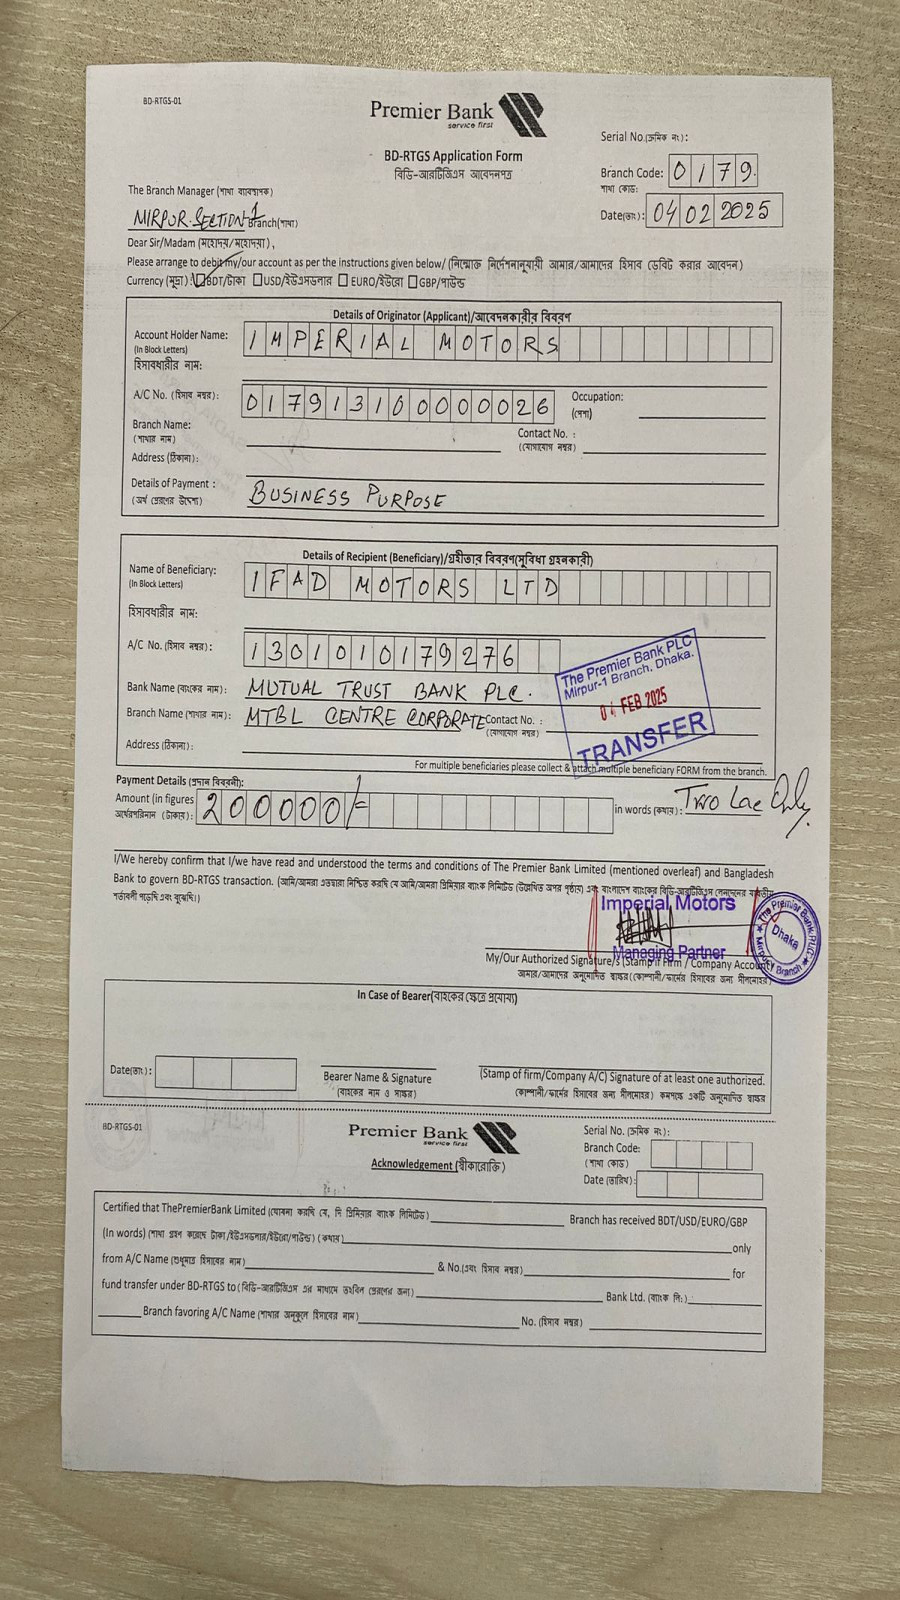 BD-RTGS-01
Premier Bank
service first
BD-RTGS Application Form
বিডি-আরটিজিএস আবেদনপত্র
Serial No.(ক্রমিক নং):
Branch Code: 0179
শাখা কোড:
Date(তাং): 04 02 2025
The Branch Manager (শাখা ব্যবস্থাপক)
MIRPUR SECTION-1 Branch(শাখা)
Dear Sir/Madam (মহোদয়/মহোদয়া),
Please arrange to debit my/our account as per the instructions given below/ (নিম্মোক্ত নির্দেশনানুযায়ী আমার/আমাদের হিসাব ডেবিট করার আবেদন)
Currency (মুদ্রা): BDT/টাকা USD/ইউএসডলার EURO/ইউরো GBP/পাউন্ড
Details of Originator (Applicant)/আবেদনকারীর বিবরণ
Account Holder Name: IMPERIAL MOTORS
(In Block Letters)
হিসাবধারীর নাম:
A/C No. (হিসাব নম্বর): 0179131000000026
Occupation:
(পেশা)
Branch Name:
(শাখার নাম)
Contact No. :
(যোগাযোগ নম্বর)
Address (ঠিকানা):
Details of Payment : BUSINESS PURPOSE
(অর্থ প্রেরণের উদ্দেশ্য)
Details of Recipient (Beneficiary)/গ্রহীতার বিবরণ(সুবিধা গ্রহনকারী)
Name of Beneficiary: IFAD MOTORS LTD
(In Block Letters)
হিসাবধারীর নাম:
A/C No. (হিসাব নম্বর): 1301010179276
The Premier Bank PLC
Mirpur-1 Branch. Dhaka.
04 FEB 2025
TRANSFER
Bank Name (ব্যাংকের নাম): MUTUAL TRUST BANK PLC.
Branch Name (শাখার নাম): MTBL CENTRE CORPORATE Contact No. :
(যোগাযোগ নম্বর)
Address (ঠিকানা):
For multiple beneficiaries please collect & attach multiple beneficiary FORM from the branch.
Payment Details (প্রদান বিবরনী):
Amount (in figures 200000/= in words (কথায়): Two Lac Only.
অর্থেরপরিমান (টাকায়):
I/We hereby confirm that I/we have read and understood the terms and conditions of The Premier Bank Limited (mentioned overleaf) and Bangladesh
Bank to govern BD-RTGS transaction. (আমি/আমরা এতদ্বারা নিশ্চিত করছি যে আমি/আমরা প্রিমিয়ার ব্যাংক লিমিটেড (উল্লেখিত অপর পৃষ্ঠায়) এবং বাংলাদেশ ব্যাংকের বিডি-আরটিজিএস লেনদেনের যাবতীয়
শর্তাবলী পড়েছি এবং বুঝেছি।)
Imperial Motors
Managing Partner
The Premier Bank PLC
Dhaka
Mirpur Branch
My/Our Authorized Signature/s (Stamp if Firm / Company Account)
আমার/আমাদের অনুমোদিত স্বাক্ষর (কোম্পানী/ফার্মের হিসাবের জন্য সীলমোহর)
In Case of Bearer(বাহকের ক্ষেত্রে প্রযোজ্য)
Date(তাং):
Bearer Name & Signature
(বাহকের নাম ও স্বাক্ষর)
(Stamp of firm/Company A/C) Signature of at least one authorized.
(কোম্পানী/ফার্মের হিসাবের জন্য সীলমোহর) কমপক্ষে একটি অনুমোদিত স্বাক্ষর
BD-RTGS-01
Premier Bank
service first
Acknowledgement (স্বীকারোক্তি)
Serial No. (ক্রমিক নং):
Branch Code:
(শাখা কোড)
Date (তারিখ):
Certified that ThePremierBank Limited (ঘোষনা করছি যে, দি প্রিমিয়ার ব্যাংক লিমিটেড) Branch has received BDT/USD/EURO/GBP
(In words) (শাখা গ্রহন করেছে টাকা/ইউএসডলার/ইউরো/পাউন্ড) (কথায়) only
from A/C Name (শুধুমাত্র হিসাবের নাম) & No.(এবং হিসাব নম্বর) for
fund transfer under BD-RTGS to (বিডি-আরটিজিএস এর মাধ্যমে তহবিল প্রেরণের জন্য) Bank Ltd. (ব্যাংক লি:)
Branch favoring A/C Name (শাখার অনুকূলে হিসাবের নাম) No. (হিসাব নম্বর)